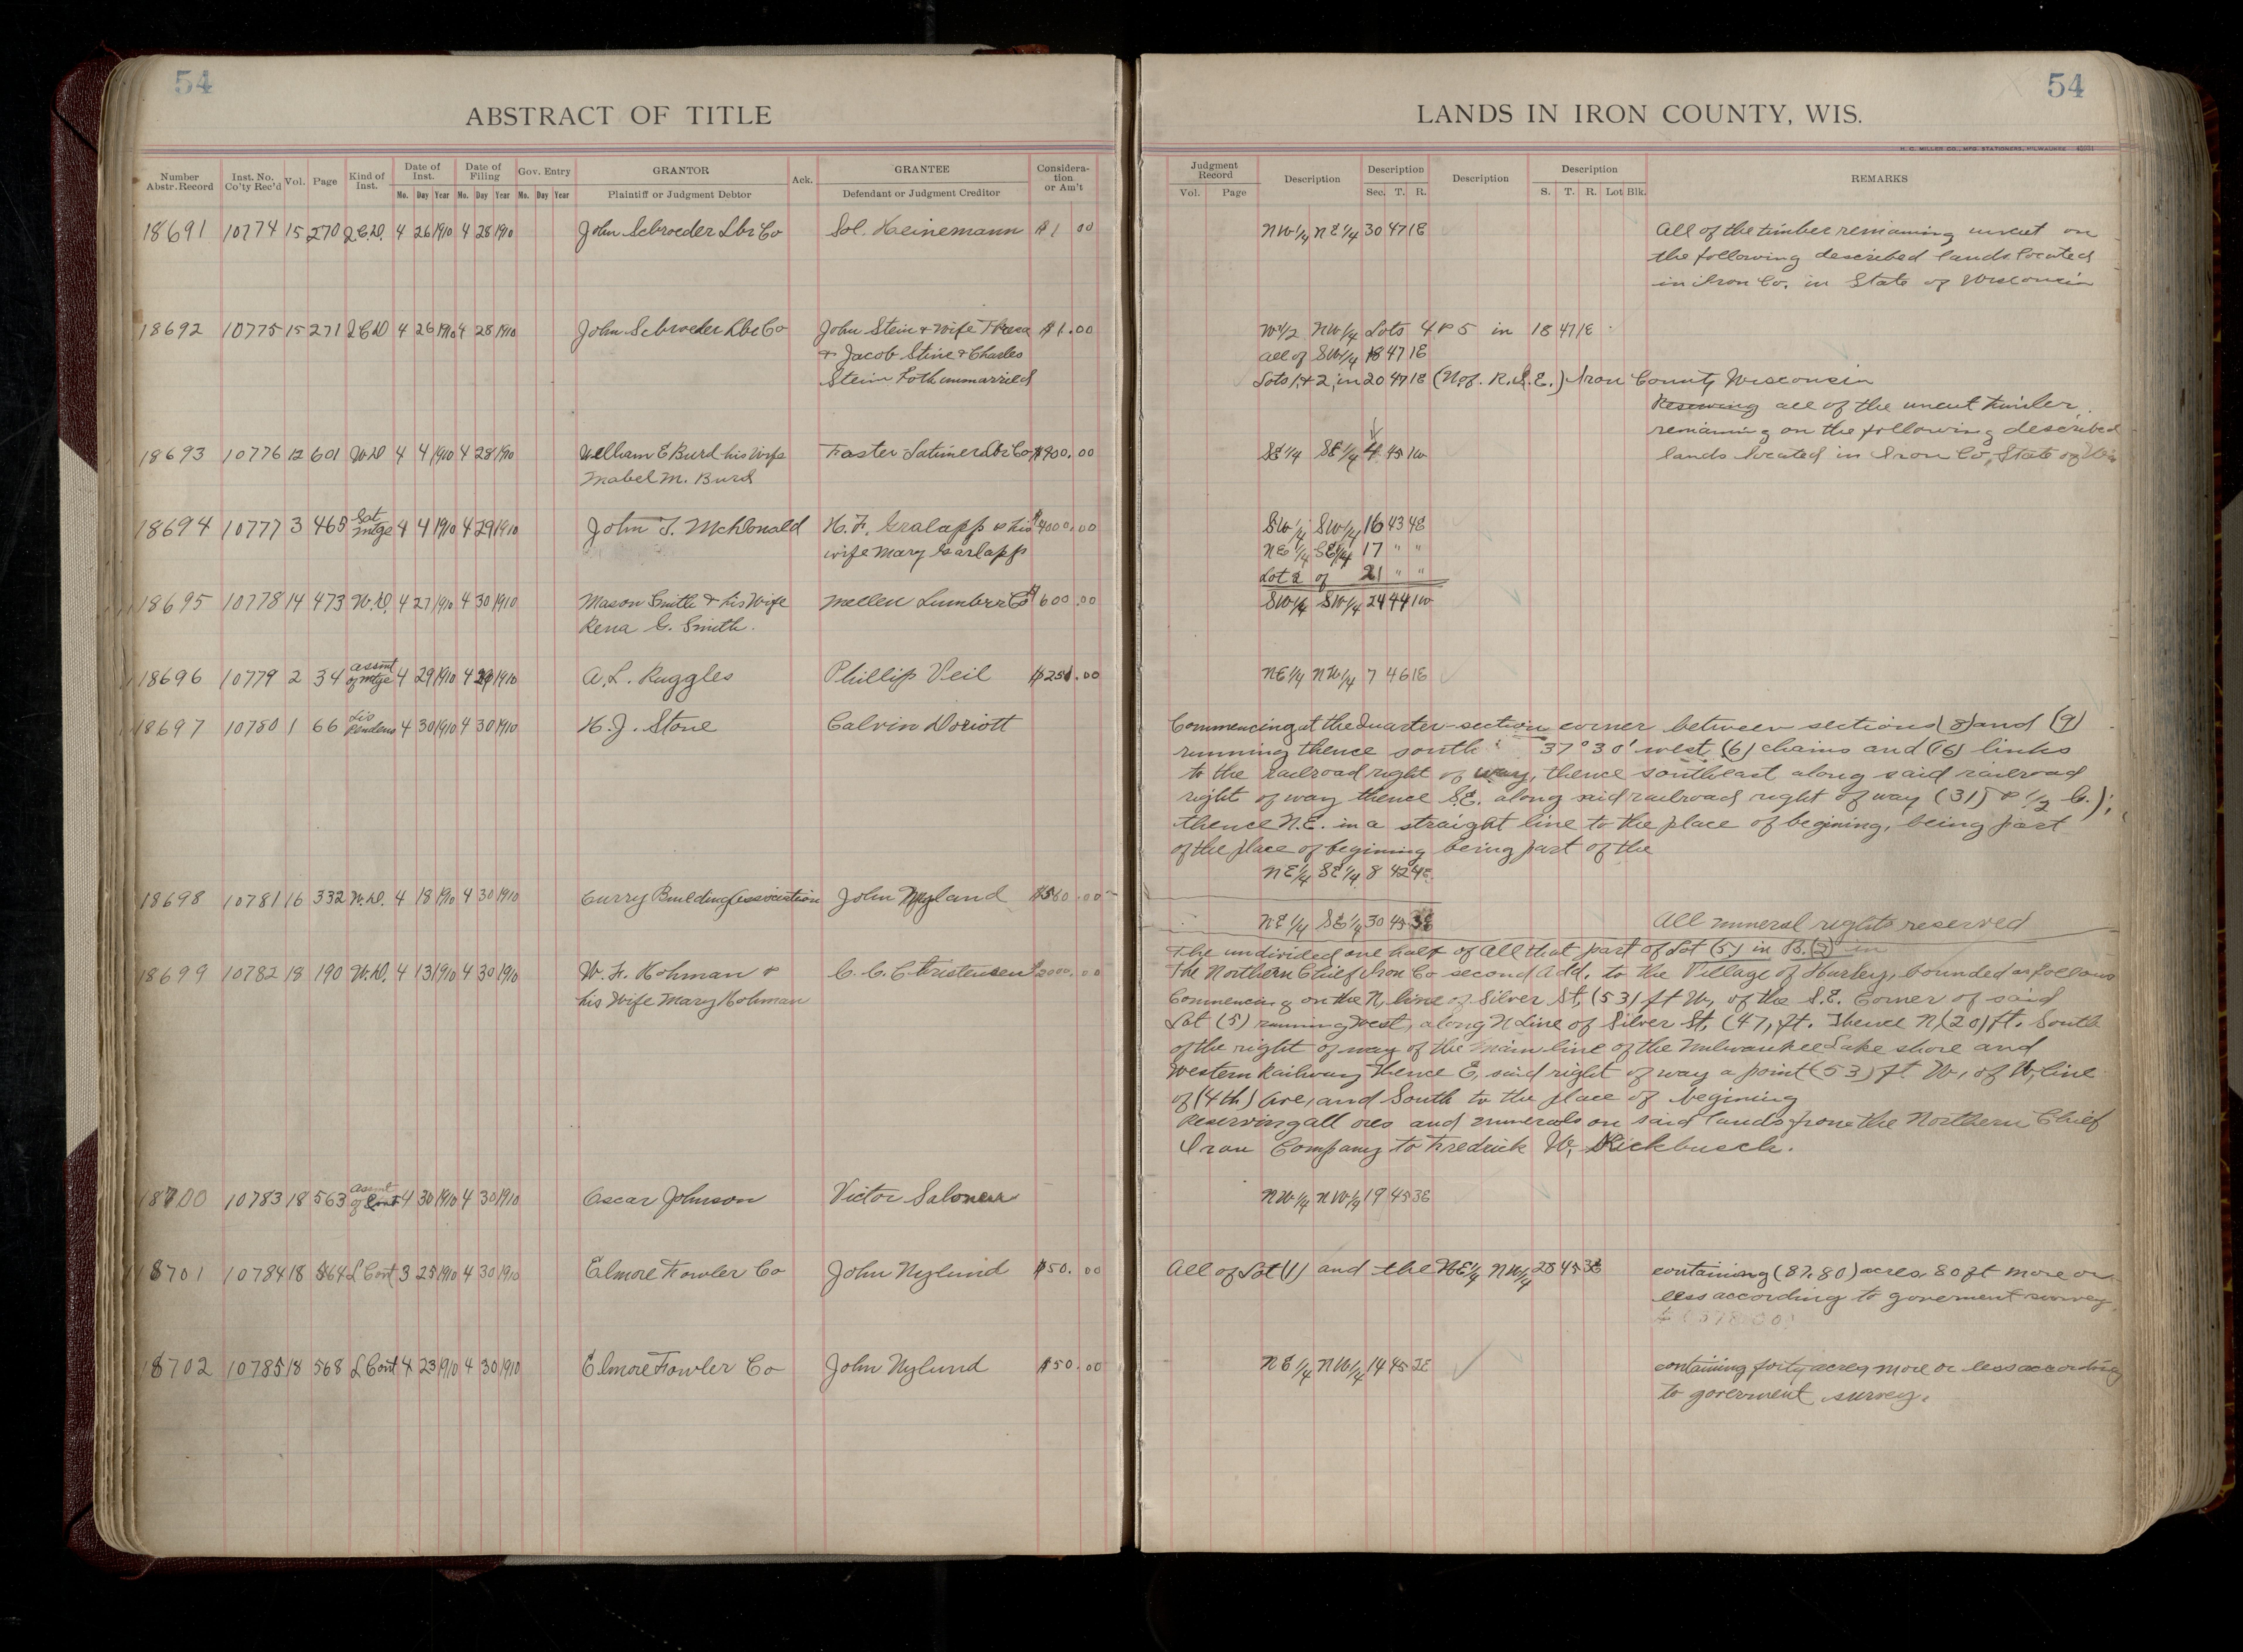 54
ABSTRACT OF TITLE
Number Abstr. Record Inst. No. Co'ty Rec'd Vol. Page Kind of Inst. Date of Inst. Mo. Day Year Date of Filing Mo. Day Year Gov. Entry Mo. Day Year GRANTOR Plaintiff or Judgment Debtor Ack. GRANTEE Defendant or Judgment Creditor Considera-tion or Am't
18691 10774 15 270 Q.C.D. 4 26 1910 4 28 1910 John Schroeder Lbr Co Sol. Heinemann $1 00
18692 10775 15 271 Q C D 4 26 1910 4 28 1910 John Schroeder Lbr Co John Stein & Wife $1.00
& Jacob Stine & Charles
Stein both unmarried
18693 10776 12 601 W.D 4 4 1910 4 28 1910 William E Burd his Wife Foster Latimer Lbr Co $900.00
Mabel M. Burd
18694 10777 3 465 Sat Mtge 4 4 1910 4 29 1910 John T. McDonald H. F. Gralapp & his $4000.00
wife Mary Garlapp
18695 10778 14 473 W.D. 4 27 1910 4 30 1910 Mason Smith & his Wife Mellen Lumber Co $600.00
Rena G. Smith.
18696 10779 2 34 assmt of mtge 4 29 1910 4 29 1910 A. L. Ruggles Phillip Veil $251.00
18697 10780 1 66 Lis Pendens 4 30 1910 4 30 1910 H. J. Stone Calvin Doriott
18698 10781 16 332 W.D. 4 18 1910 4 30 1910 Curry Building Association John Nyland $560.00
18699 10782 18 190 W.D. 4 13 1910 4 30 1910 W. F. Hohman & C. C. Christensen $2000.00
his Wife Mary Hohman
18700 10783 18 563 Assmt of Cont 4 30 1910 4 30 1910 Oscar Johnson Victor
18701 10784 18 564 L Cont 3 25 1910 4 30 1910 Elmore Fowler Co John Nylund $50.00
18702 10785 18 568 L Cont 4 23 1910 4 30 1910 Elmore Fowler Co John Nylund $50.00
54
LANDS IN IRON COUNTY, WIS.
H. C. MILLER CO., MFG. STATIONERS, MILWAUKEE
Judgment Record Vol. Page Description Description Sec. T. R. Description Description S. T. R. Lot Blk. REMARKS
NW 1/4 NE 1/4 30 47 1E All of the timber remaining uncut on
the following described lands located
in Iron Co. in State of Wisconsin
W 1/2 NW 1/4 Lots 4 & 5 in 18 47 1E
all of SW 1/4 18 47 1E
Lots 1 & 2 in 20 47 1E (N. of. R.) Iron County Wisconsin
Reserving all of the uncut timber
remaining on the following described
SE 1/4 SE 1/4 4 45 1W lands located in Iron Co, State of Wis
SW 1/4 SW 1/4 16 43 4E
NE 1/4 SE 1/4 17 " "
Lot 2 of 21 " "
SW 1/4 SW 1/4 24 44 1W
NE 1/4 NW 1/4 7 46 1E
Commencing at the Quarter-section corner between sections (8) and (9)
running thence south 37° 30' west (6) chains and (16) links
to the railroad right of way, thence southeast along said railroad
right of way thence S.E. along said railroad right of way (31) & 1/2 C.);
thence N.E. in a straight line to the place of begining, being part
of the place of begining being part of the
NE 1/4 SE 1/4 8 42 4E
NE 1/4 SE 1/4 30 45 3E All mineral rights reserved
The undivided one half of all that part of Lot (5) in B. (2) in
The Northern Chief Iron Co second Add. to the Village of Hurley, bounded as follows
Commencing on the N, line of Silver St, (53) ft W, of the S.E. Corner of said
Lot (5) running West, along N Line of Silver St, (47) ft. Thence N, (20) ft. South
of the right of way of the main line of the Milwaukee Lake shore and
Western Railway thence E, said right of way a point (53) ft W, of W, line
of (4th) Ave, and South to the place of begining
Reserving all ores and minerals on said lands from the Northern Chief
Iron Company to Fredrick W, Kickbusch.
NW 1/4 NW 1/4 19 45 3E
All of Lot (1) and the NE 1/4 NW 1/4 28 45 3E containing (87.80) acres 80 ft more or
less according to goverment survey
NE 1/4 NW 1/4 14 45 2E containing forty acres more or less according
to goverment survey.